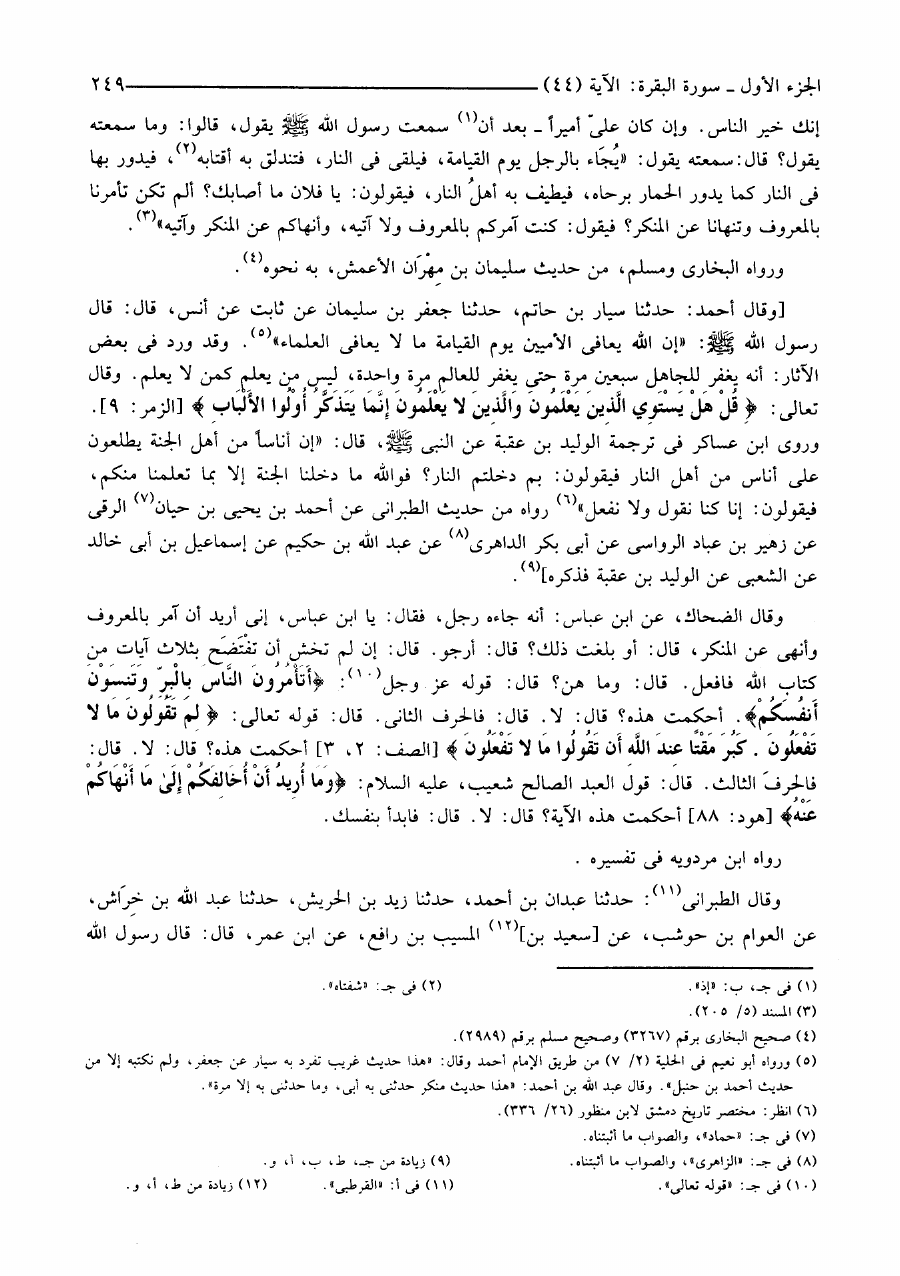 الجزء الأول ـ سورة البقرة: الآية (٤٤) ٢٤٩
إنك خير الناس. وإن كان علىّ أميراً ـ بعد أن(١) سمعت رسول الله ﷺ يقول، قالوا: وما سمعته
يقول؟ قال:سمعته يقول: «يُجَاء بالرجل يوم القيامة، فيلقى فى النار، فتندلق به أقتابه(٢)، فيدور بها
فى النار كما يدور الحمار برحاه، فيطيف به أهلُ النار، فيقولون: يا فلان ما أصابك؟ ألم تكن تأمرنا
بالمعروف وتنهانا عن المنكر؟ فيقول: كنت آمركم بالمعروف ولا آتيه، وأنهاكم عن المنكر وآتيه»(٣).
ورواه البخارى ومسلم، من حديث سليمان بن مِهْرَان الأعمش، به نحوه(٤).
[وقال أحمد: حدثنا سيار بن حاتم، حدثنا جعفر بن سليمان عن ثابت عن أنس، قال: قال
رسول الله ﷺ: «إن الله يعافى الأميين يوم القيامة ما لا يعافى العلماء»(٥). وقد ورد فى بعض
الآثار: أنه يغفر للجاهل سبعين مرة حتى يغفر للعالم مرة واحدة، ليس من يعلم كمن لا يعلم. وقال
تعالى: ﴿ قُلْ هَلْ يَسْتَوِي الَّذِينَ يَعْلَمُونَ وَالَّذِينَ لا يَعْلَمُونَ إِنَّمَا يَتَذَكَّرُ أُولُوا الأَلْبَابِ ﴾ [الزمر: ٩].
وروى ابن عساكر فى ترجمة الوليد بن عقبة عن النبى ﷺ، قال: «إن أناساً من أهل الجنة يطلعون
على أناس من أهل النار فيقولون: بم دخلتم النار؟ فوالله ما دخلنا الجنة إلا بما تعلمنا منكم،
فيقولون: إنا كنا نقول ولا نفعل»(٦) رواه من حديث الطبرانى عن أحمد بن يحيى بن حيان(٧) الرقى
عن زهير بن عباد الرواسى عن أبى بكر الداهرى(٨) عن عبد الله بن حكيم عن إسماعيل بن أبى خالد
عن الشعبى عن الوليد بن عقبة فذكره](٩).
وقال الضحاك، عن ابن عباس: أنه جاءه رجل، فقال: يا ابن عباس، إنى أريد أن آمر بالمعروف
وأنهى عن المنكر، قال: أو بلغت ذلك؟ قال: أرجو. قال: إن لم تخش أن تفْتَضَح بثلاث آيات من
كتاب الله فافعل. قال: وما هن؟ قال: قوله عز وجل(١٠): ﴿أَتَأْمُرُونَ النَّاسَ بِالْبِرِّ وَتَنسَوْنَ
أَنفُسَكُمْ﴾. أحكمت هذه؟ قال: لا. قال: فالحرف الثانى. قال: قوله تعالى: ﴿ لِمَ تَقُولُونَ مَا لا
تَفْعَلُونَ . كَبُرَ مَقْتًا عِندَ اللَّهِ أَن تَقُولُوا مَا لا تَفْعَلُونَ ﴾ [الصف: ٢، ٣] أحكمت هذه؟ قال: لا. قال:
فالحرفَ الثالث. قال: قول العبد الصالح شعيب، عليه السلام: ﴿وَمَا أُرِيدُ أَنْ أُخَالِفَكُمْ إِلَىٰ مَا أَنْهَاكُمْ
عَنْهُ﴾ [هود: ٨٨] أحكمت هذه الآية؟ قال: لا. قال: فابدأ بنفسك.
رواه ابن مردويه فى تفسيره .
وقال الطبرانى(١١): حدثنا عبدان بن أحمد، حدثنا زيد بن الحريش، حدثنا عبد الله بن خِرَاش،
عن العوام بن حوشب، عن [سعيد بن](١٢) المسيب بن رافع، عن ابن عمر، قال: قال رسول الله
(١) فى جـ، ب: «إذ». (٢) فى جـ: «شفتاه».
(٣) المسند (٥/ ٢٠٥).
(٤) صحيح البخارى برقم (٣٢٦٧) وصحيح مسلم برقم (٢٩٨٩).
(٥) ورواه أبو نعيم فى الحلية (٢/ ٧) من طريق الإمام أحمد وقال: «هذا حديث غريب تفرد به سيار عن جعفر، ولم نكتبه إلا من
حديث أحمد بن حنبل». وقال عبد الله بن أحمد: «هذا حديث منكر حدثنى به أبى، وما حدثنى به إلا مرة».
(٦) انظر: مختصر تاريخ دمشق لابن منظور (٢٦/ ٣٣٦).
(٧) فى جـ: «حماد»، والصواب ما أثبتناه.
(٨) فى جـ: «الزاهرى»، والصواب ما أثبتناه. (٩) زيادة من جـ، ط، ب، أ، و.
(١٠) فى جـ: «قوله تعالى». (١١) فى أ: «القرطبى». (١٢) زيادة من ط، أ، و.